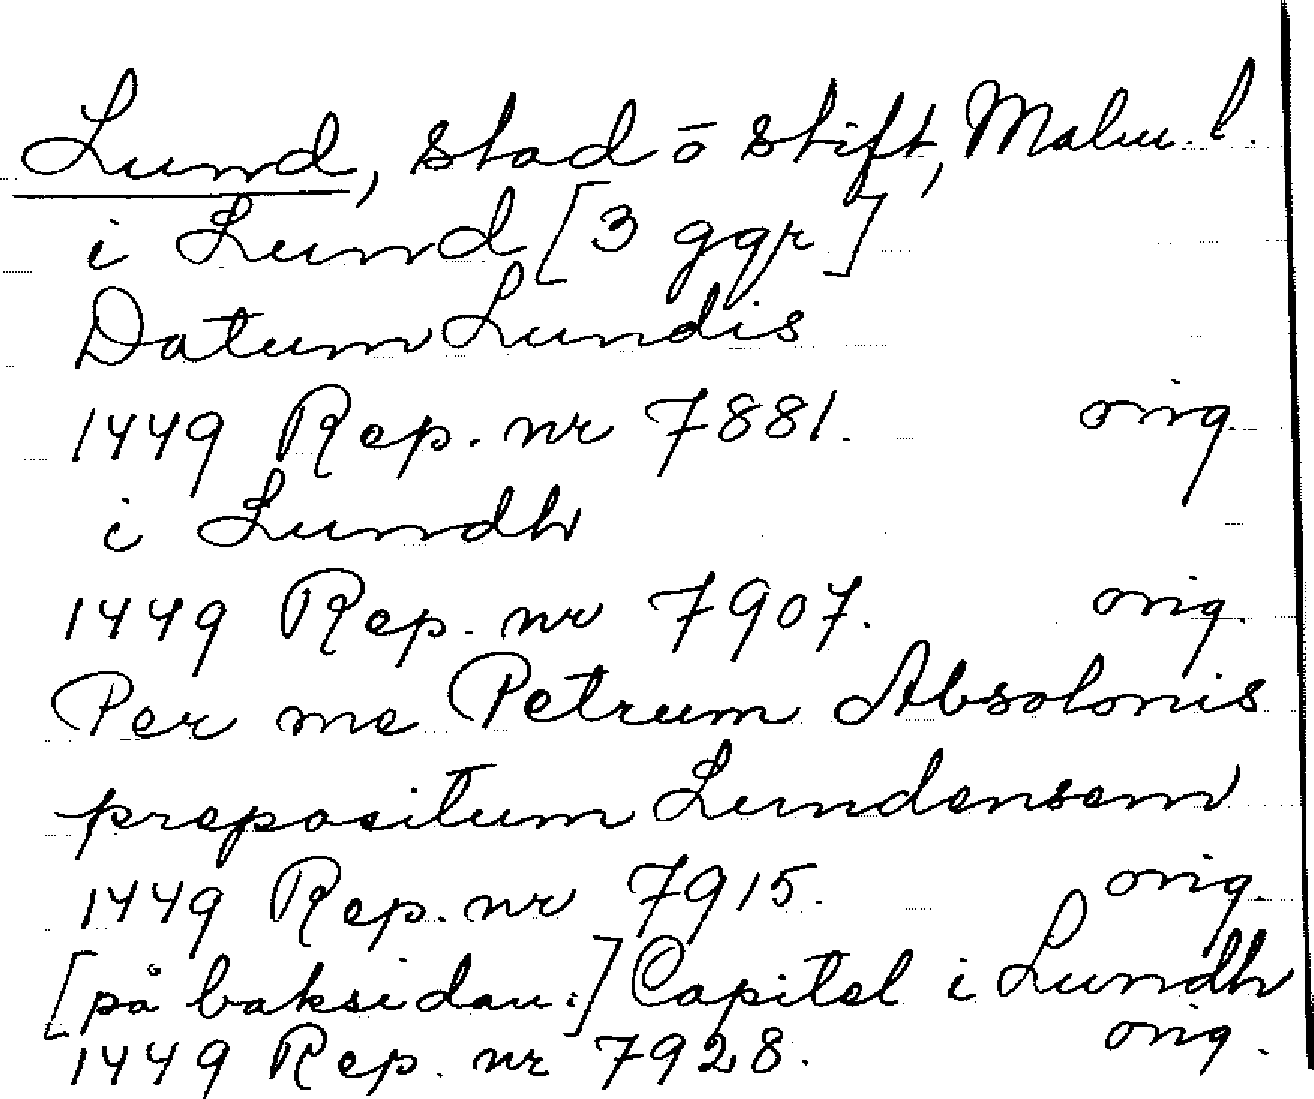 Lund, stad o stift, Malm. l.
i Lund [3 ggr]
Datum Lundis
1449 Rep. nr 7881. orig.
i Lundh
1449 Rep. nr 7907. orig.
Per me Petrum Absolonis
prepositum Lundensem
1449 Rep. nr 7915. orig.
[på baksidan:] Capitel i Lundh
1449 Rep. nr 7928. orig.